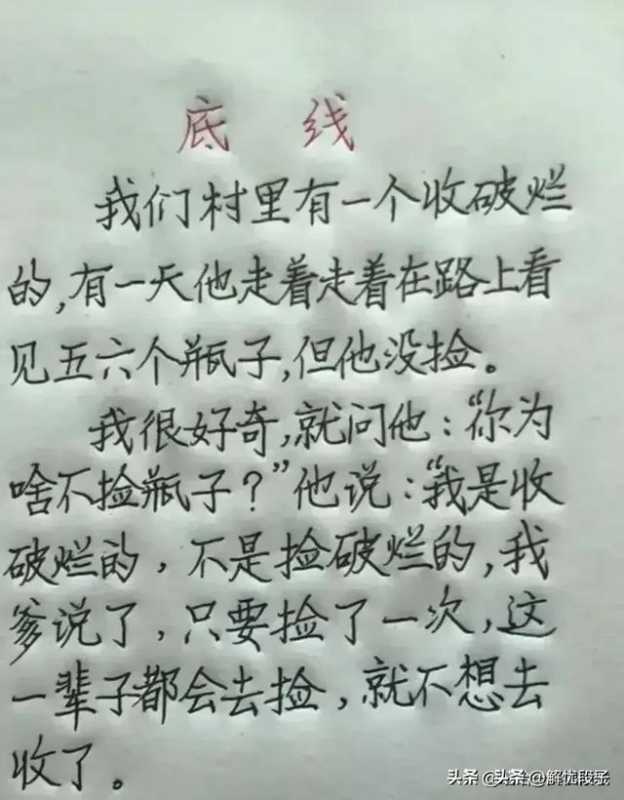 底 线
我们村里有一个收破烂
的,有一天他走着走着在路上看
见五六个瓶子,但他没捡。
我很好奇,就问他:“你为
啥不捡瓶子?”他说:“我是收
破烂的,不是捡破烂的,我
爹说了,只要捡了一次,这
一辈子都会去捡,就不想去
收了。
头条 @头条 @解忧段子